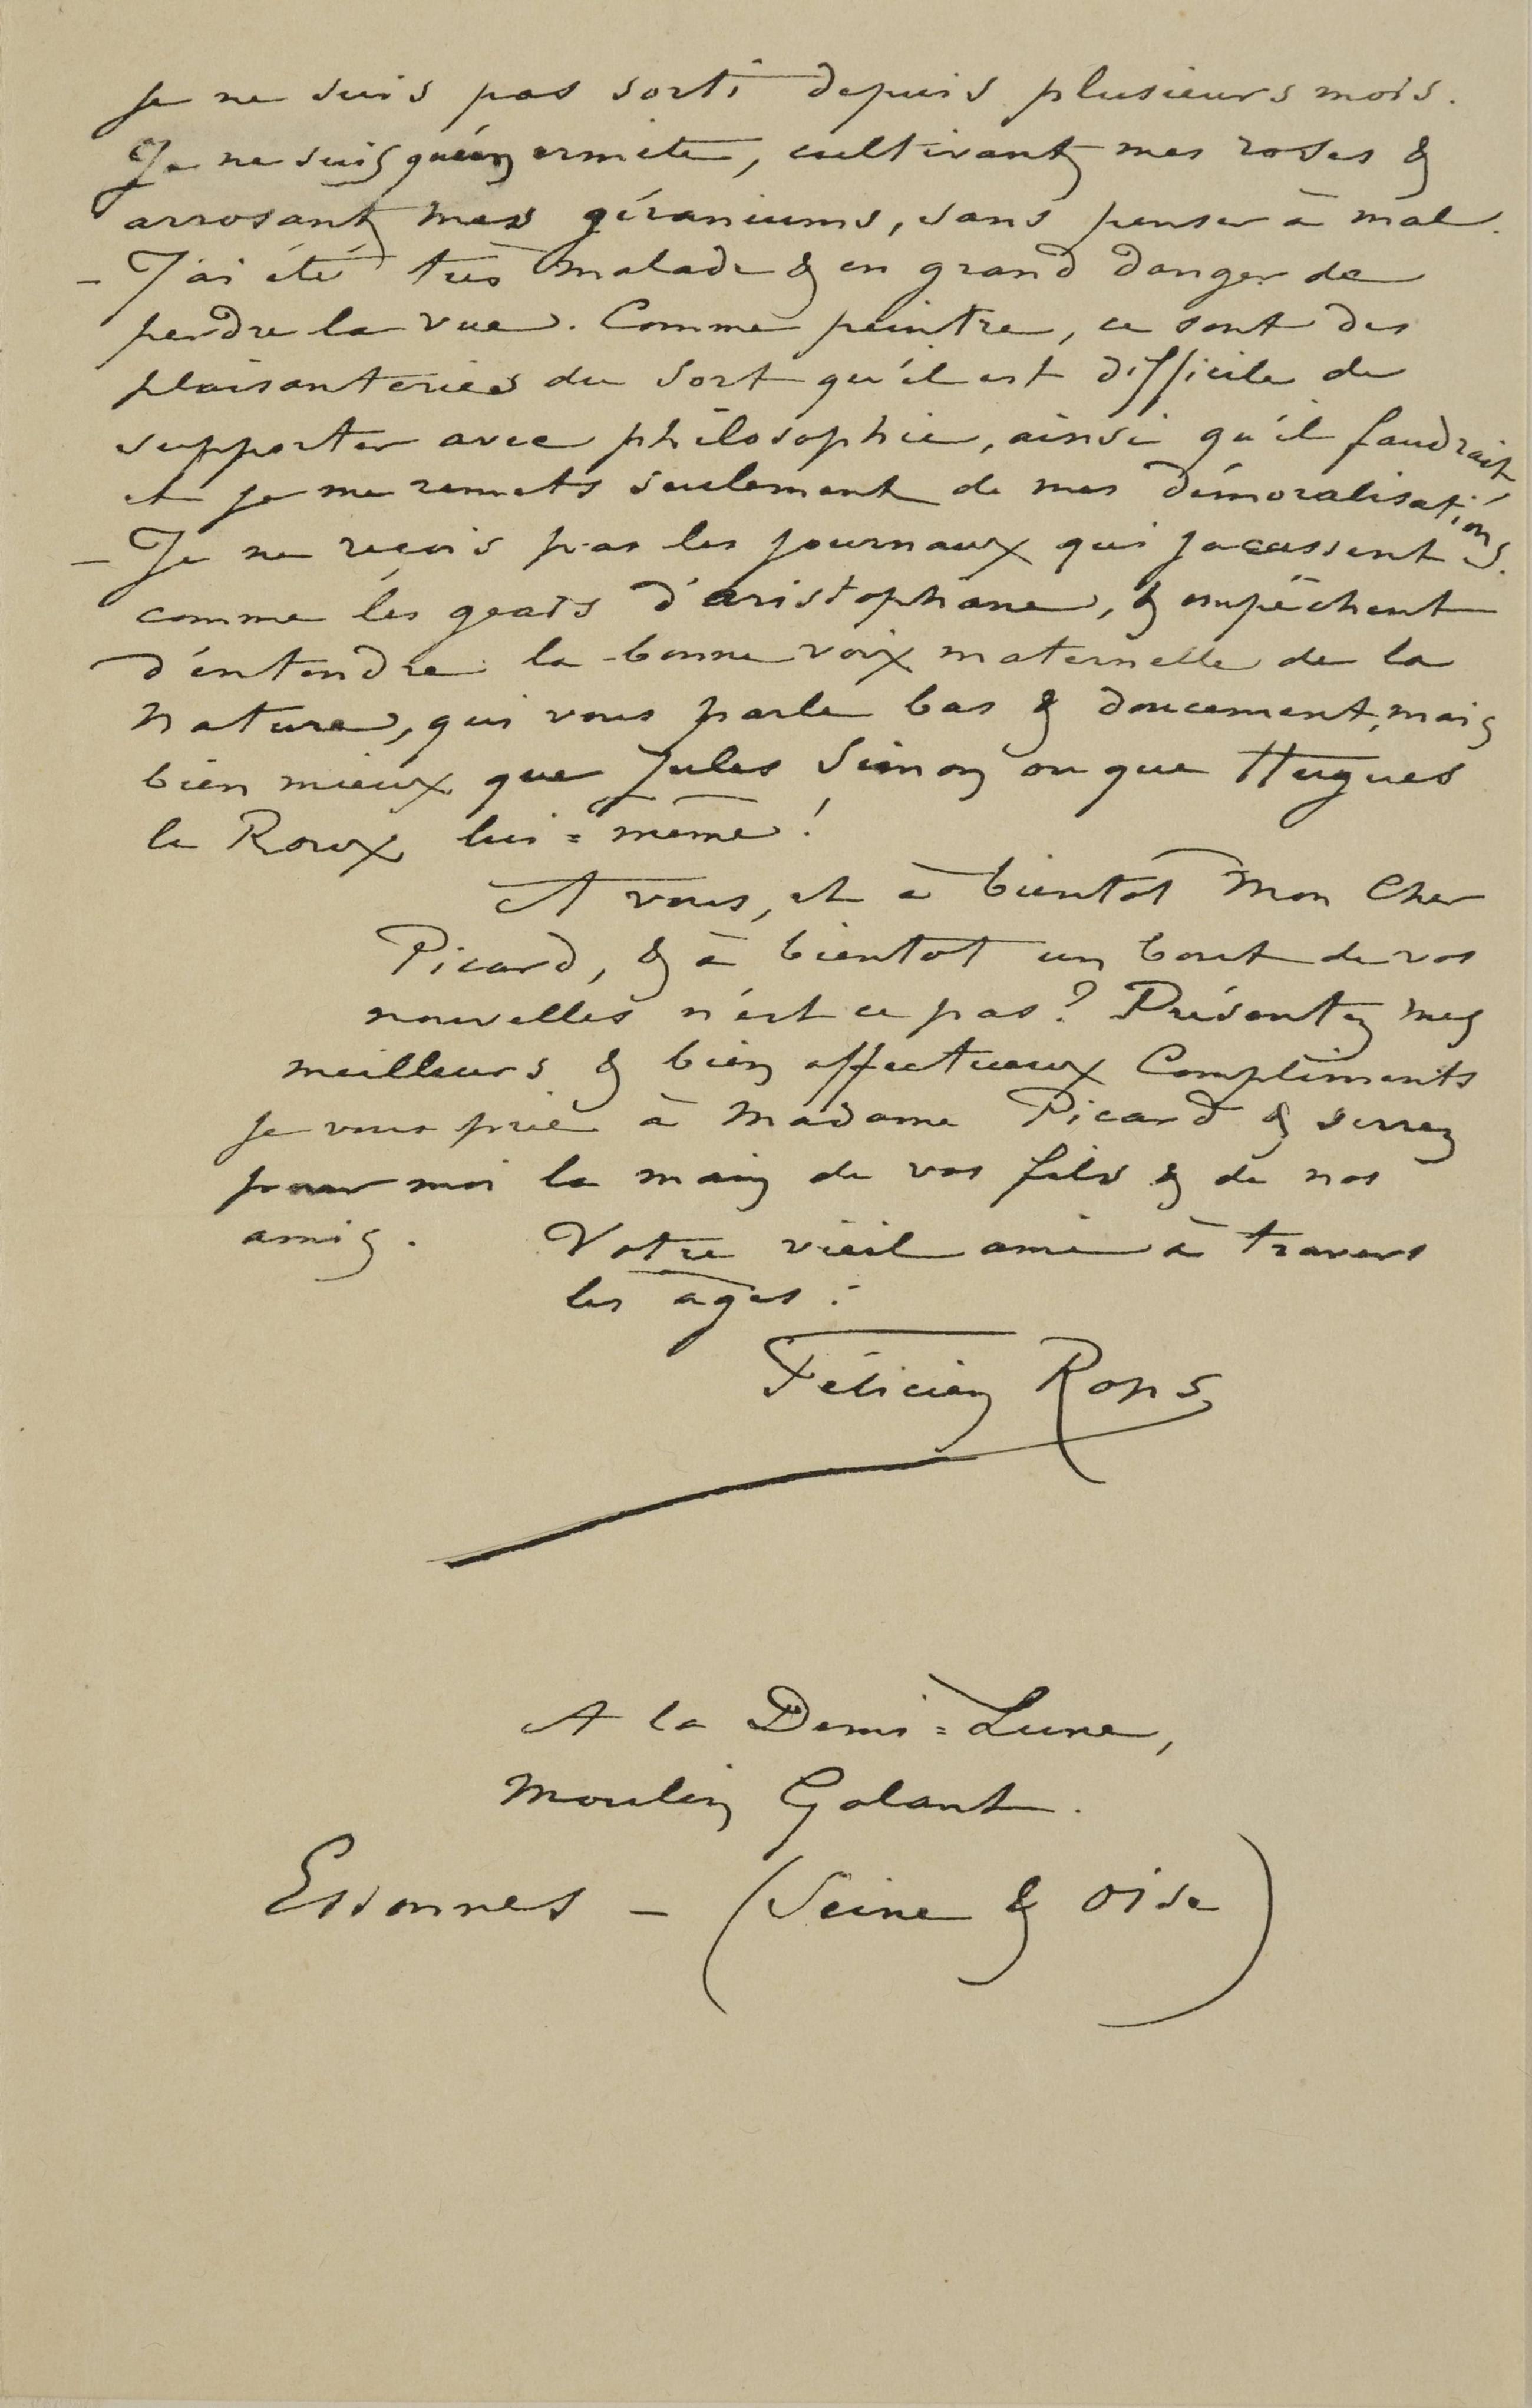 je ne suis pas sorti depuis plusieurs mois.
Je ne suis qu'un ermite, cultivant mes roses &
arrosant mes géraniums, sans penser à mal.
– J'ai été très malade & en grand danger de
perdre la vue. Comme peintre, ce sont des
plaisanteries du sort qu'il est difficile de
supporter avec philosophie, ainsi qu'il faudrait
et je me remets seulement de mes démoralisations.
– Je ne reçois pas les journaux qui jacassent
comme les geais d'aristophane, & empêchent
d'entendre la bonne voix maternelle de la
Nature, qui vous parle bas & doucement, mais
bien mieux que Jules Simon ou que Hugues
le Roux lui=même!
A vous, et à bientôt Mon Cher
Picard, & à bientot un bout de vos
nouvelles n'est ce pas? Présentez mes
meilleurs & bien affectueux Compliments
je vous prie à Madame Picard & serrez
pour moi la main de vos fils & de nos
amis. Votre vieil ami à travers
les ages:
Félicien Rops
A la Demi=Lune,
Moulin Galant.
Essonnes – (Seine & Oise)